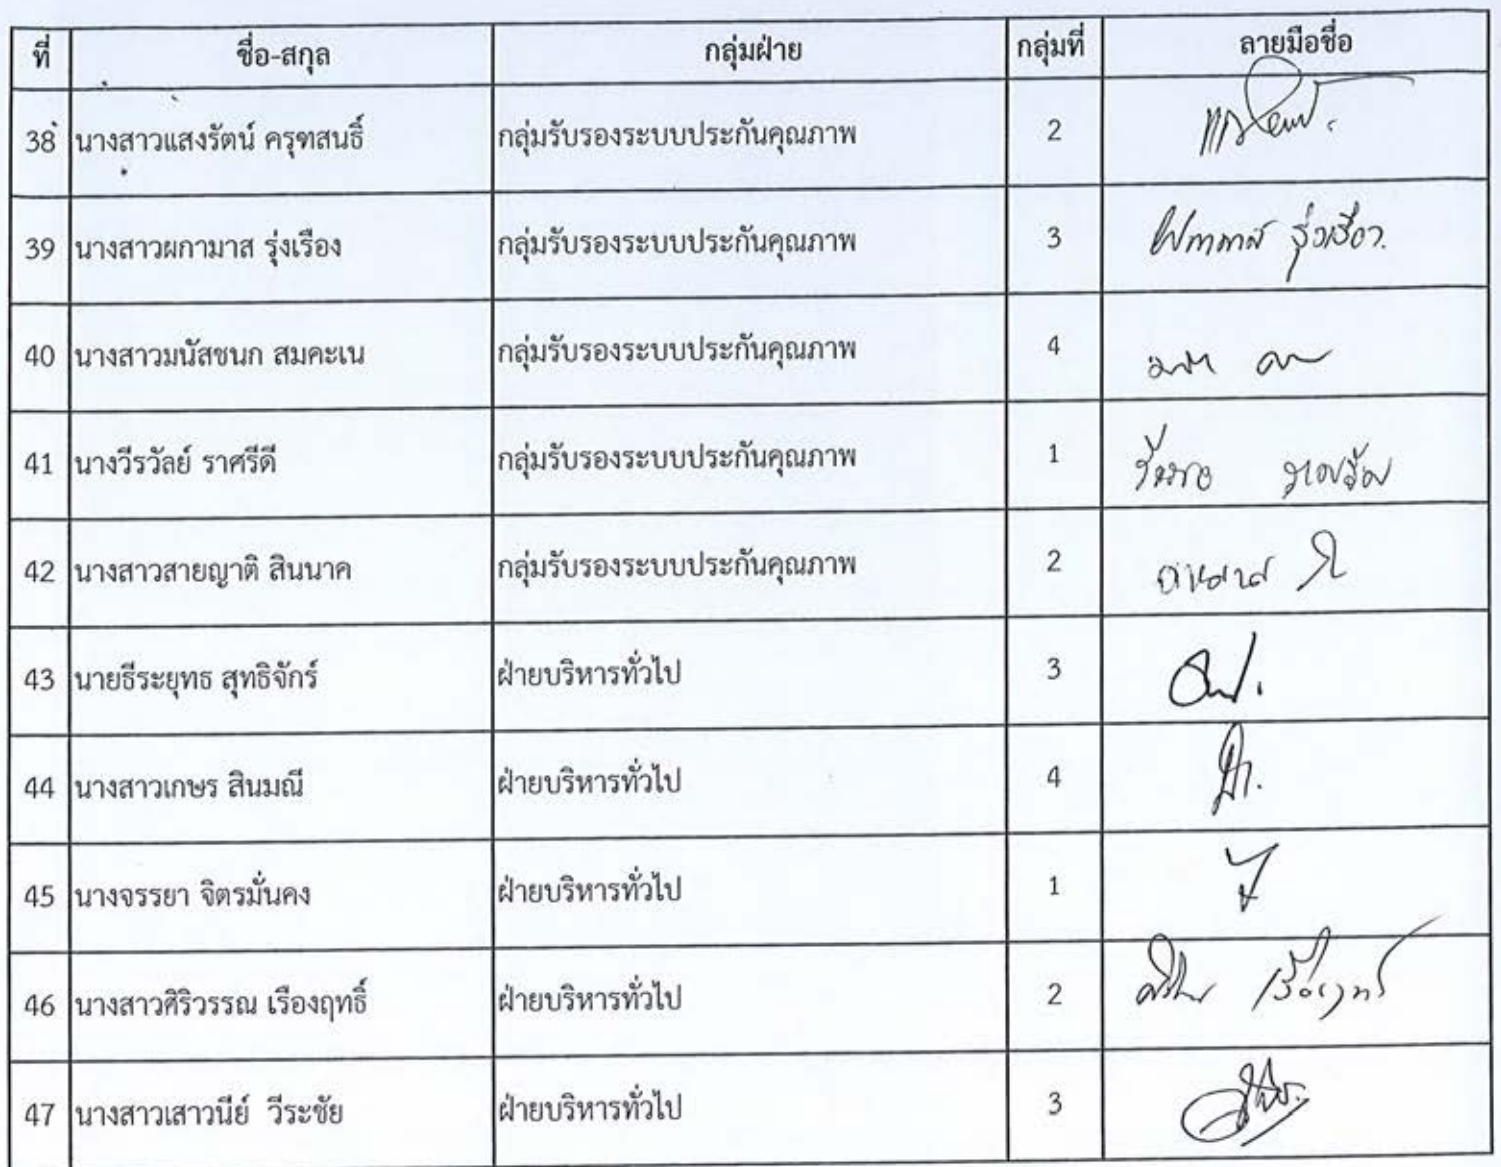 ที่ ชื่อ-สกุล กลุ่มฝ่าย กลุ่มที่ ลายมือชื่อ
38 นางสาวแสงรัตน์ ครุฑสนธิ์ กลุ่มรับรองระบบประกันคุณภาพ 2
39 นางสาวผกามาส รุ่งเรือง กลุ่มรับรองระบบประกันคุณภาพ 3 ผกามาส รุ่งเรือง
40 นางสาวมนัสชนก สมคะเน กลุ่มรับรองระบบประกันคุณภาพ 4
41 นางวีรวัลย์ ราศรีดี กลุ่มรับรองระบบประกันคุณภาพ 1
42 นางสาวสายญาติ สินนาค กลุ่มรับรองระบบประกันคุณภาพ 2
43 นายธีระยุทธ สุทธิจักร์ ฝ่ายบริหารทั่วไป 3
44 นางสาวเกษร สินมณี ฝ่ายบริหารทั่วไป 4
45 นางจรรยา จิตรมั่นคง ฝ่ายบริหารทั่วไป 1
46 นางสาวศิริวรรณ เรืองฤทธิ์ ฝ่ายบริหารทั่วไป 2
47 นางสาวเสาวนีย์ วีระชัย ฝ่ายบริหารทั่วไป 3